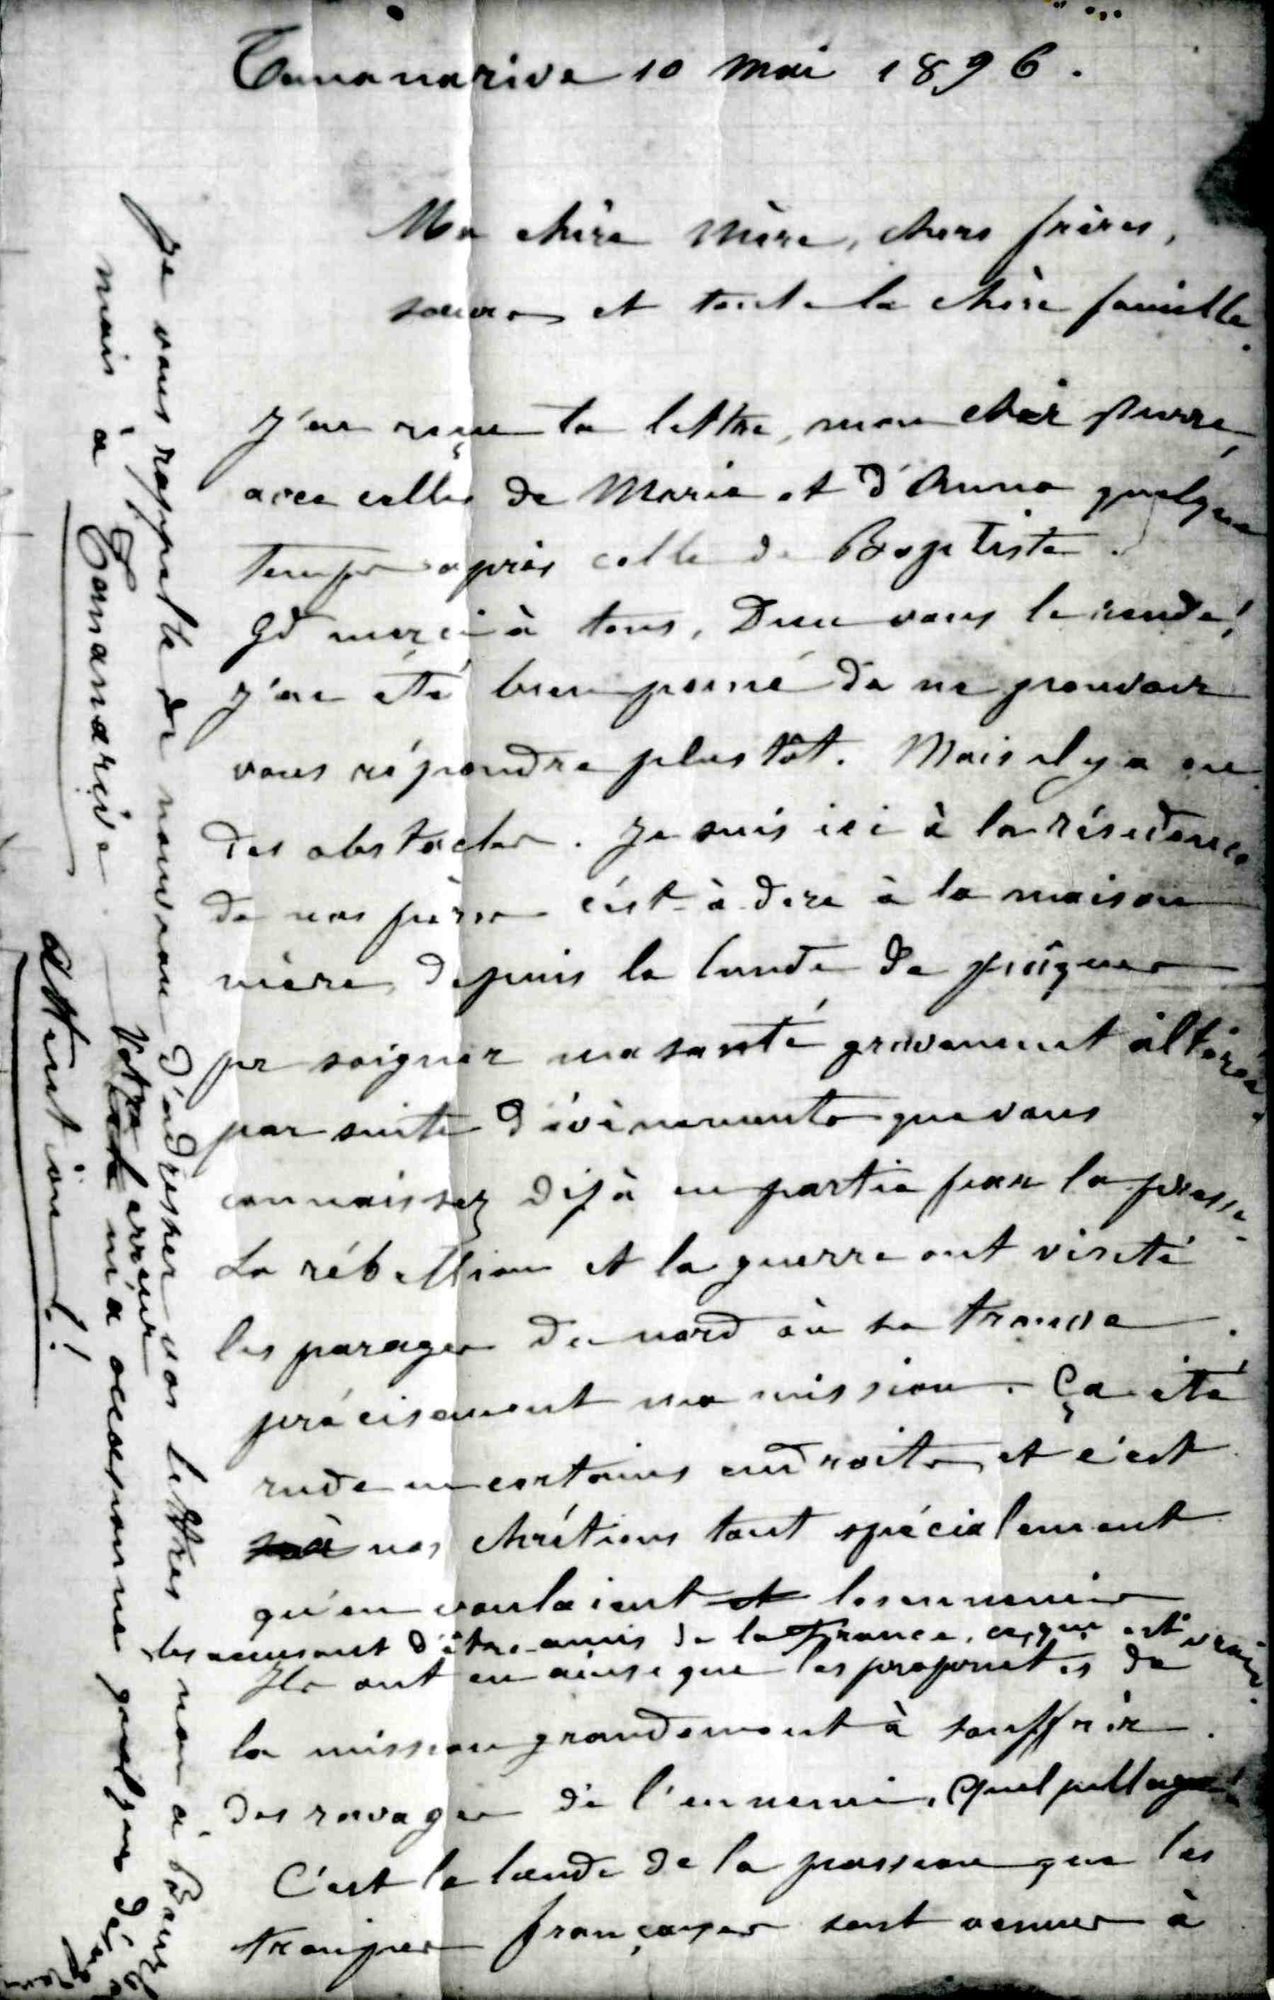 Tananarive 10 Mai 1896.
Ma chère Mère, chers frères,
sœurs et toute la chère famille.
J'ai reçu ta lettre, mon cher pierre,
avec celles de Marie et d'Anna quelque
temps après celle de Baptiste.
Gd merci à tous, Dieu vous le rende!
J'ai été bien peiné de ne pouvoir
vous répondre plus tôt. Mais il y a eu
des obstacles. Je suis ici à la résidence
de nos pères c'est-à-dire à la maison
mère, depuis le lundi de pâques
pr soigner ma santé gravement altérée
par suite d'évènements que vous
connaissez déjà en partie par la presse.
La rébellion et la guerre ont visité
les parages du nord où se trouve
précisément ma mission. Ça été
rude en certains endroits et c'est
à nos chrétiens tout spécialement
qu'en voulaient et les ennemis
les accusant d'être amis de la France, ce qui est vrai.
Ils ont eu ainsi que les propriétés de
la mission grandement à souffrir
des ravages de l'ennemi. Quel pillage!
C'est le lundi de la passion que les
troupes françaises sont venues à
Je vous rappelle de nouveau d'adresser vos lettres non à
mais à Tananarive. Votre erreur m'a occasionné quelques
Attention!